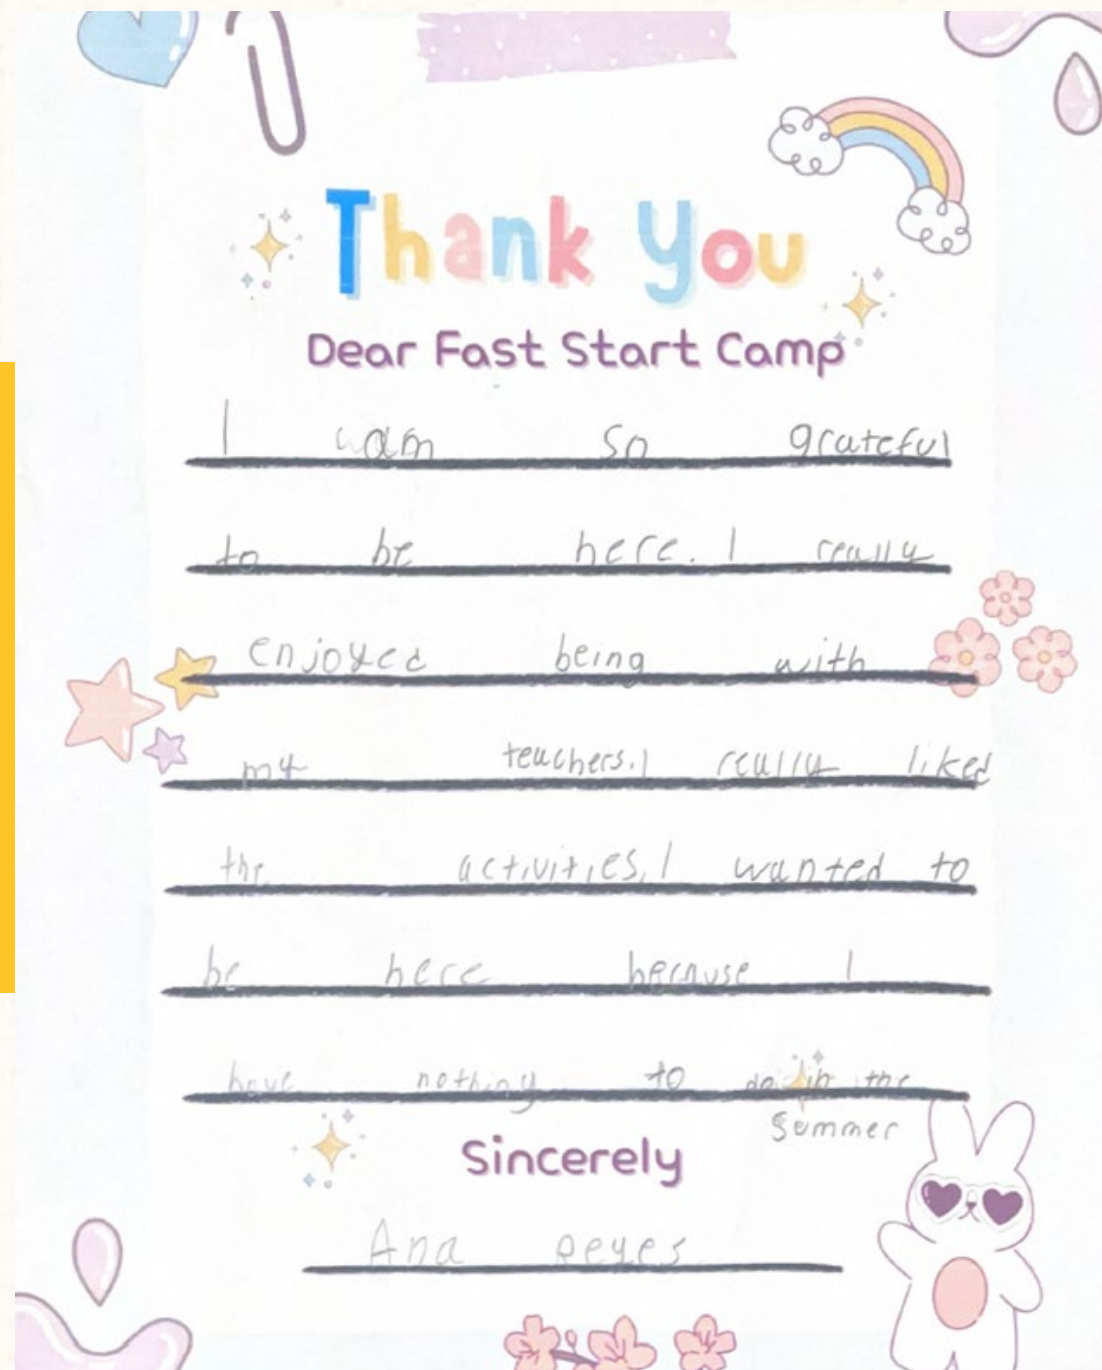 Thank You
Dear Fast Start Camp
I am so grateful
to be here. I really
enjoyed being with
my teachers. I really liked
the activities, I wanted to
be here because I
have nothing to do in the
Summer
Sincerely
Ana Reyes